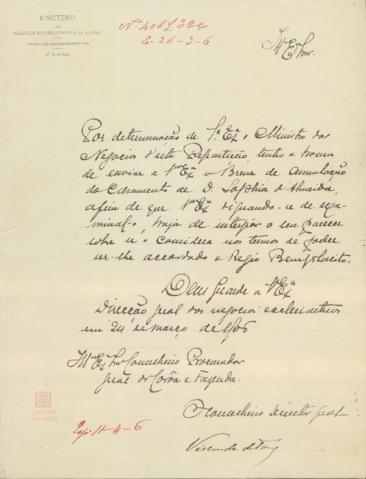 MINISTERIO
DOS
NEGOCIOS ECCLESIASTICOS E DA JUSTIÇA
E. 26-3-6
Por determinação de S. Exª o Ministro dos
Negocios d'esta Repartição, tenho a honra
de enviar a V. Exª o Breve de Annulação
do Casamento de D. Sophia d'Almeida,
afim de que V. Exª dignando-se de exa-
minal-o, haja de interpôr o seu parecer
sobre se o considera nos termos de poder
ser-lhe accordado o Regio Beneplacito.
Deus Guarde a V. Exª
Direcção geral dos negocios ecclesiasticos
em 24 de março de 1906
Conselheiro Procurador
geral da Corôa e Fazenda.
O conselheiro director geral
11-4-6
Visconde de